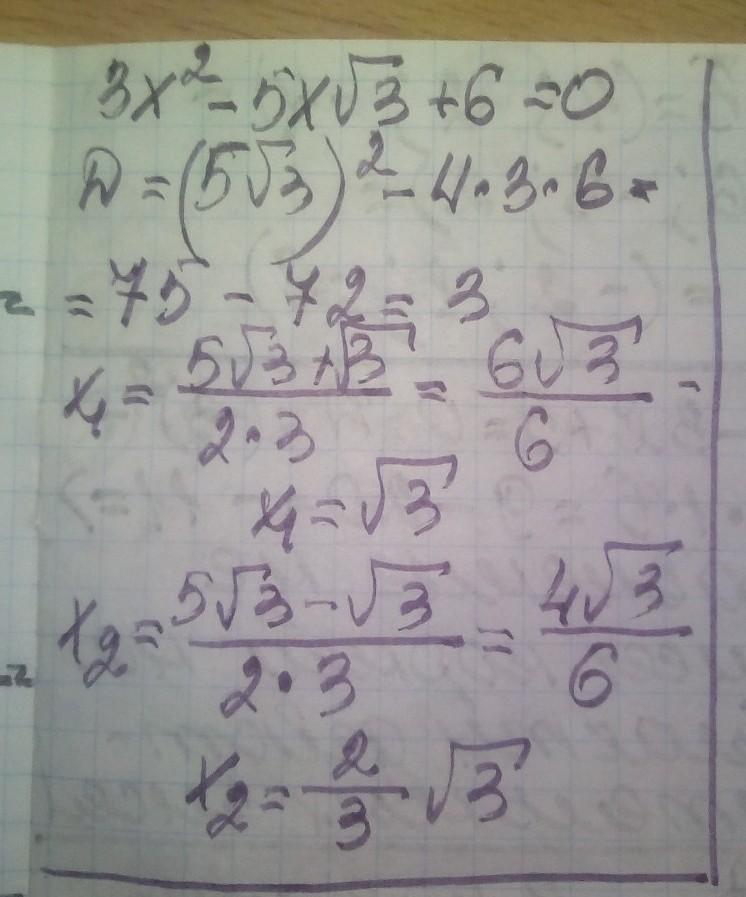 3x² - 5x√3 + 6 = 0
D = (5√3)² - 4·3·6 =
= 75 - 72 = 3
x₁ = (5√3 + √3)/(2·3) = 6√3/6 -
x₁ = √3
x₂ = (5√3 - √3)/(2·3) = 4√3/6
x₂ = 2/3 √3